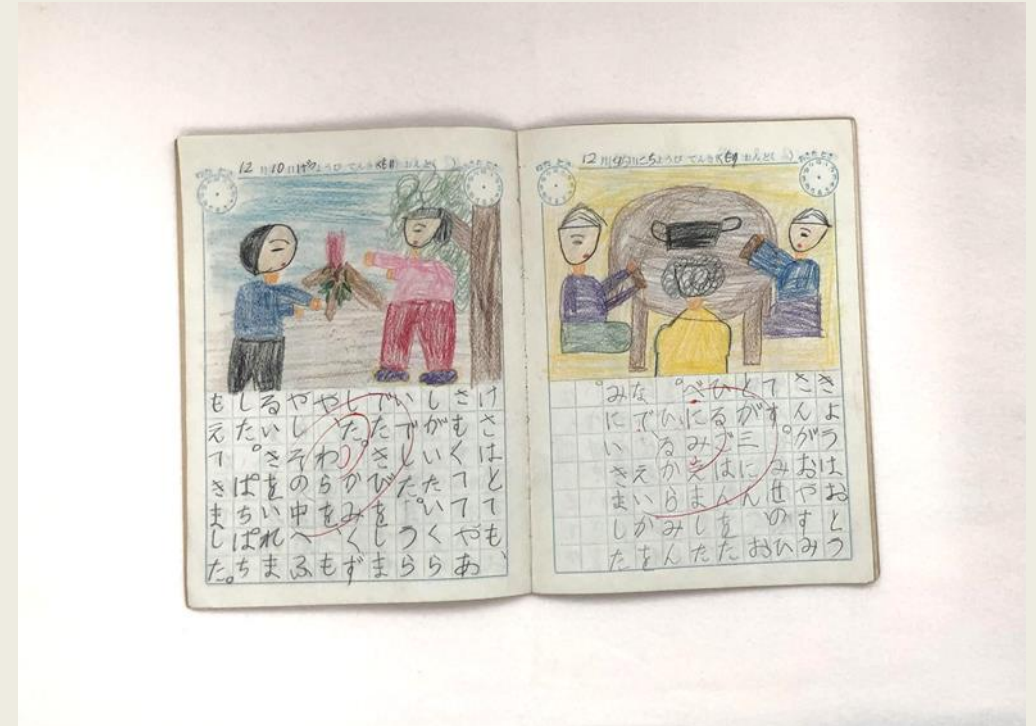 12月9日にちようび てんき おんど
きようはおとう
さんがおやすみ
です。みせのひ
とが三にん お
ひるごはんをた
べにみえました
。ひるからみん
なで、えいがを
みにいきました
。
12月10日げつようび てんき おんど
けさはとても、
さむくててやあ
しがいたいくら
いでした。うら
でたきびをしま
した。かみくず
やわらをも
やしその中へふ
るいきをいれま
した。ぱちぱち
もえてきました。